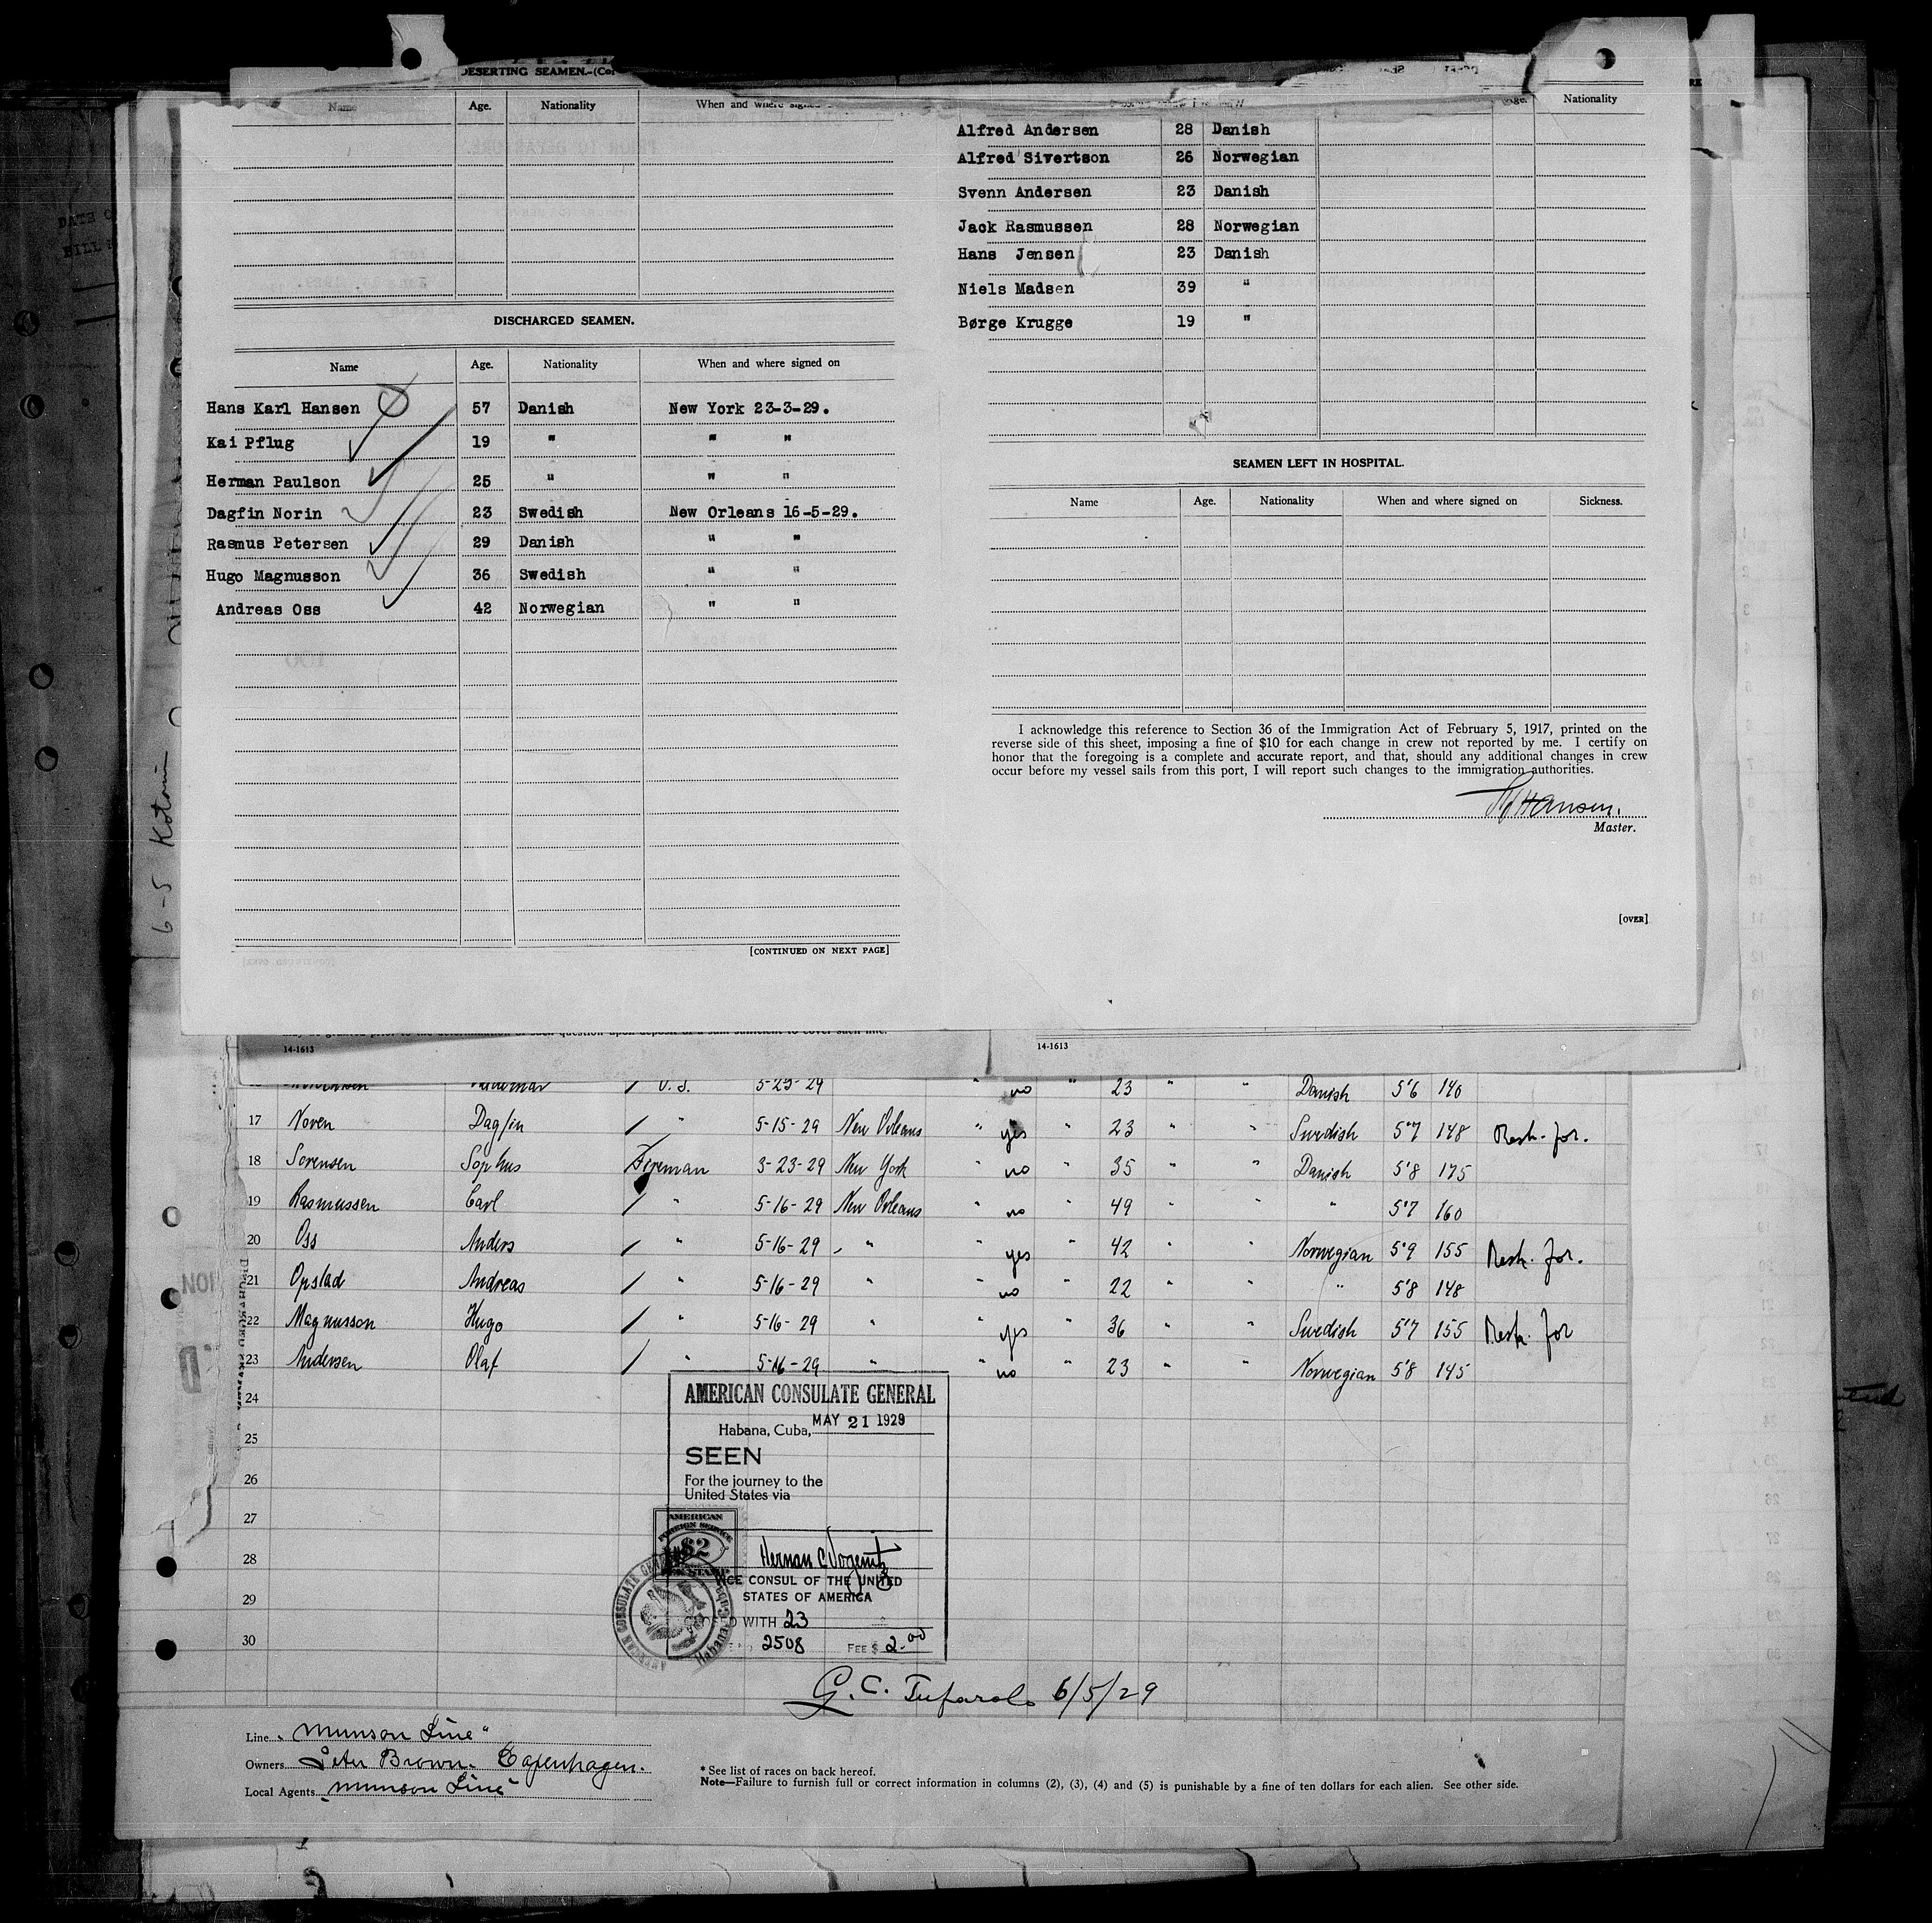 DESERTING SEAMEN.—(Con
Name Age. Nationality When and where signed
DISCHARGED SEAMEN.
Name Age. Nationality When and where signed on
Hans Karl Hansen 57 Danish New York 23-3-29.
Kai Pflug 19 " " "
Herman Paulson 25 " " "
Dagfin Norin 23 Swedish New Orleans 16-5-29.
Rasmus Petersen 29 Danish " "
Hugo Magnusson 36 Swedish " "
Andreas Oss 42 Norwegian " "
[CONTINUED ON NEXT PAGE]
Age. Nationality
Alfred Andersen 28 Danish
Alfred Sivertson 26 Norwegian
Svenn Andersen 23 Danish
Jack Rasmussen 28 Norwegian
Hans Jensen 23 Danish
Niels Madsen 39 "
Børge Krugge 19 "
SEAMEN LEFT IN HOSPITAL.
Name Age. Nationality When and where signed on Sickness.
I acknowledge this reference to Section 36 of the Immigration Act of February 5, 1917, printed on the
reverse side of this sheet, imposing a fine of $10 for each change in crew not reported by me. I certify on
honor that the foregoing is a complete and accurate report, and that, should any additional changes in crew
occur before my vessel sails from this port, I will report such changes to the immigration authorities.
Hansen.
Master.
[OVER]
6-5
14-1613
14-1613
U.S. 5-23-29 " no " 23 " " Danish 5'6 140
17 Noren Dagfin / " 5-15-29 New Orleans " yes " 23 " " Swedish 5'7 148 Resh. for.
18 Sorensen Sophus Fireman 3-23-29 New York " no " 35 " " Danish 5'8 175
19 Rasmussen Carl / " 5-16-29 New Orleans " no " 49 " " " 5'7 160
20 Oss Anders / " 5-16-29 " " yes " 42 " " Norwegian 5'9 155 Resh. for.
21 Opstad Andreas / " 5-16-29 " " no " 22 " " " 5'8 148
22 Magnusson Hugo / " 5-16-29 " " yes " 36 " " Swedish 5'7 155 Resh. for
23 Andersen Olaf / " 5-16-29 " " no " 23 " " Norwegian 5'8 145
24
25
26
27
28
29
30
AMERICAN CONSULATE GENERAL
Habana, Cuba, MAY 21 1929
SEEN
For the journey to the
United States via
AMERICAN
FOREIGN SERVICE
$2
VICE CONSUL OF THE UNITED
STATES OF AMERICA
WITH 23
2508 FEE $ 2.00
AMERICAN CONSULATE GENERAL Habana, Cuba
G. C. 6/5/29
Line "Munson Line"
Owners Peter Brown. Copenhagen.
Local Agents "Munson Line"
* See list of races on back hereof.
Note—Failure to furnish full or correct information in columns (2), (3), (4) and (5) is punishable by a fine of ten dollars for each alien. See other side.